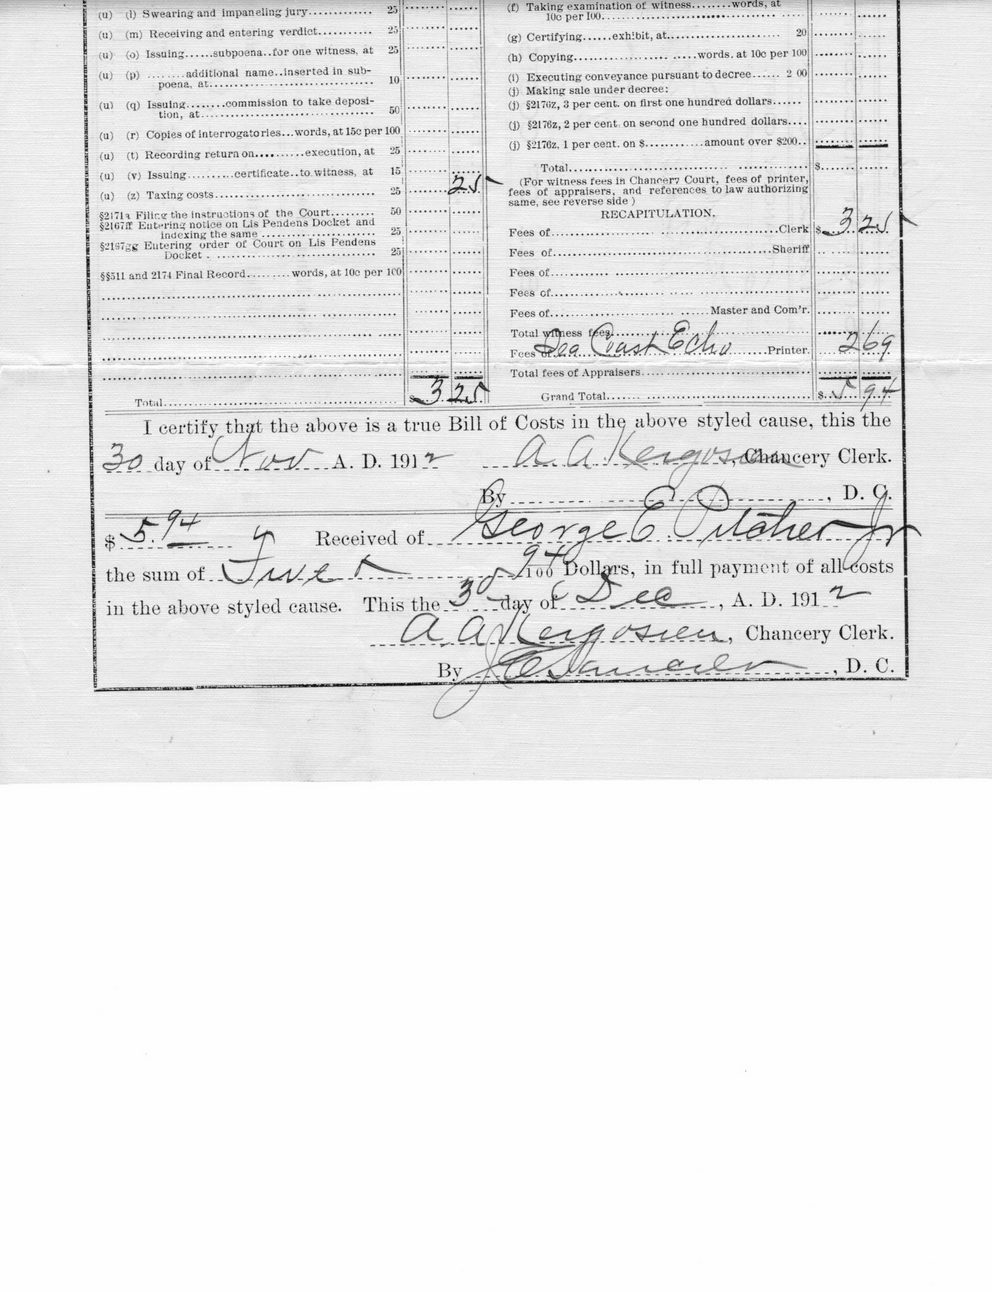 (u) (l) Swearing and impaneling jury............ 25
(u) (m) Receiving and entering verdict........... 25
(u) (o) Issuing......subpoena..for one witness, at 25
(u) (p) ........additional name..inserted in sub-
poena, at............................ 10
(u) (q) Issuing........commission to take deposi-
tion, at.............................. 50
(u) (r) Copies of interrogatories...words, at 15c per 100
(u) (t) Recording return on..........execution, at 25
(u) (v) Issuing .........certificate..to witness, at 15
(u) (z) Taxing costs.............................. 25 25
§2171a Filing the instructions of the Court........ 50
§2167ff Entering notice on Lis Pendens Docket and
indexing the same ...................... 25
§2167gg Entering order of Court on Lis Pendens
Docket .............................. 25
§§511 and 2174 Final Record........words, at 10c per 100
Total........................................ $ 3 25
(f) Taking examination of witness........words, at
10c per 100..............................
(g) Certifying......exhibit, at....................... 20
(h) Copying.........................words. at 10c per 100
(i) Executing conveyance pursuant to decree...... 2 00
(j) Making sale under decree:
(j) §2176z, 3 per cent. on first one hundred dollars......
(j) §2176z, 2 per cent. on second one hundred dollars....
(j) §2176z, 1 per cent. on $............amount over $200..
Total........................................ $
(For witness fees in Chancery Court, fees of printer,
fees of appraisers, and references to law authorizing
same, see reverse side )
RECAPITULATION.
Fees of........................................Clerk $ 3 25
Fees of.......................................Sheriff
Fees of........................................
Fees of........................................
Fees of............................Master and Com'r.
Total witness fees..............................
Fees of Sea Coast Echo ......Printer. 2 69
Total fees of Appraisers............................
Grand Total................................... $ 5 94
I certify that the above is a true Bill of Costs in the above styled cause, this the
30 day of Nov A. D. 1912 A. A. Kergosien, Chancery Clerk.
By ........................, D. C.
$ 5.94 Received of George E Pitcher Jr
the sum of Five 94/100 Dollars, in full payment of all costs
in the above styled cause. This the 30 day of Dec, A. D. 1912
A. A. Kergosien, Chancery Clerk.
By , D. C.